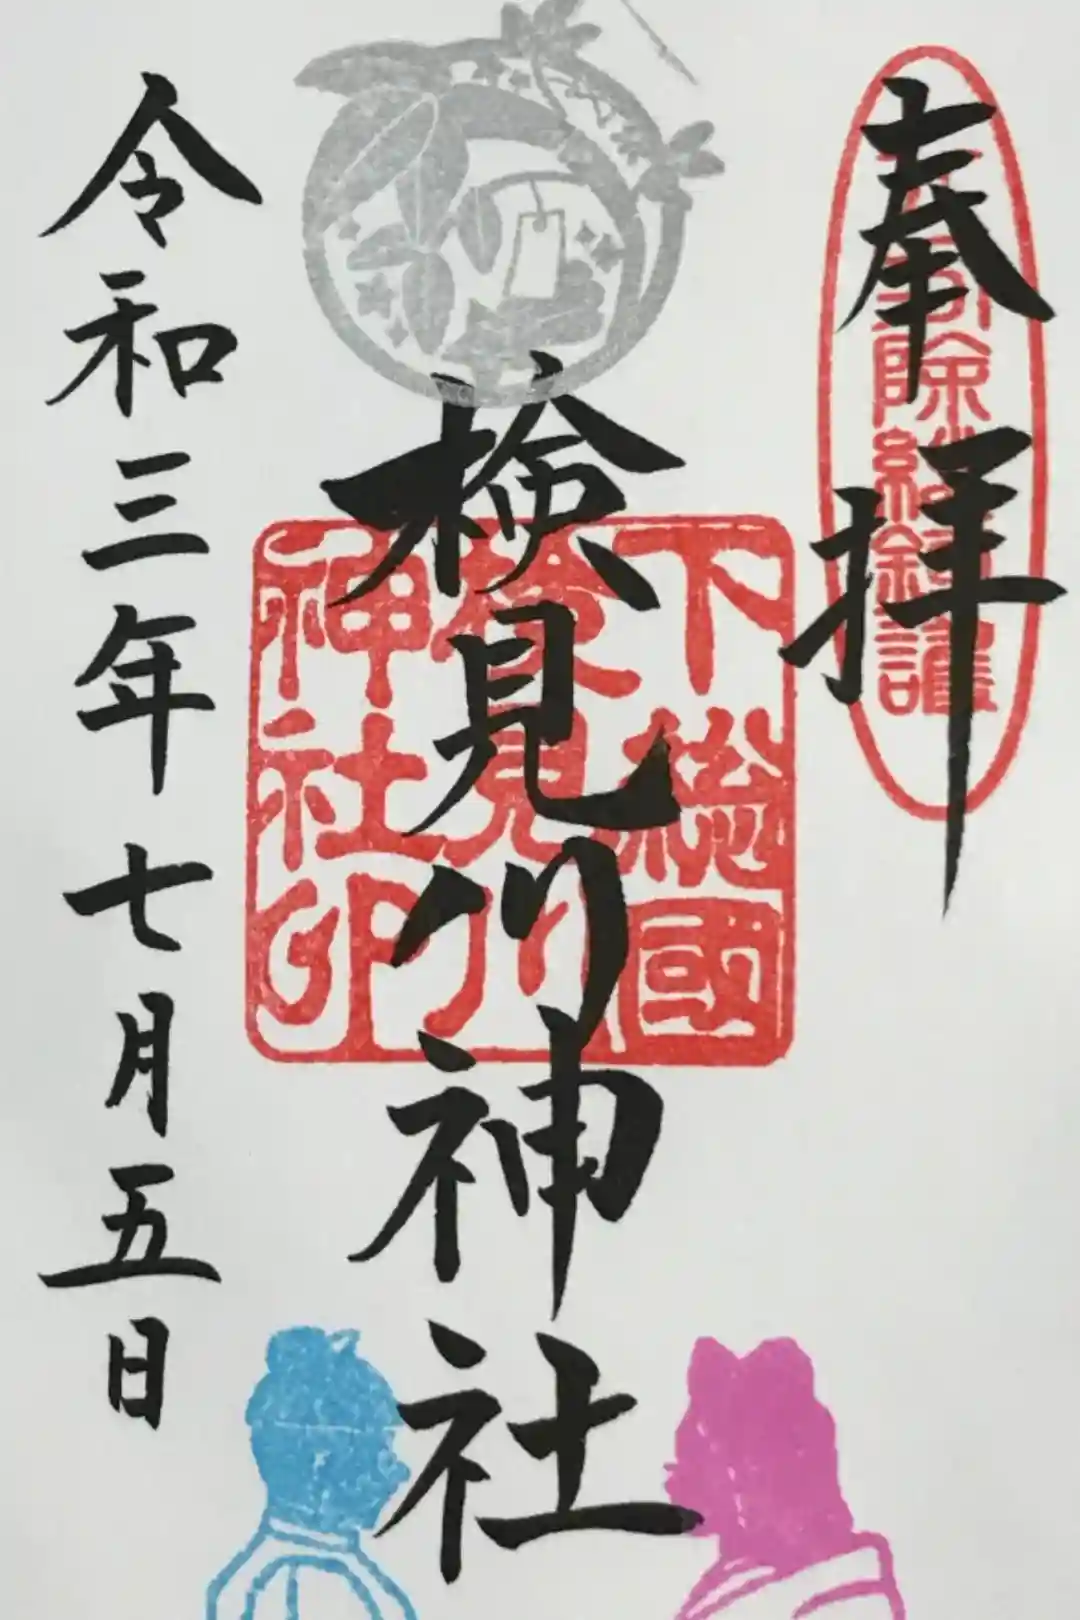 奉拝
下総國
検見川
神社印
検見川神社
令和三年七月五日